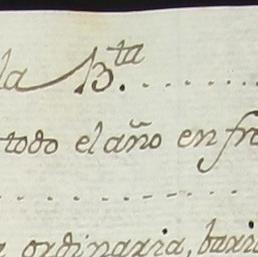 la B.ta
todo el año en fre
ordinaria, bari